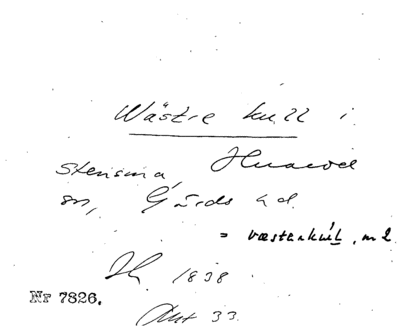 Wästre kull i
stensma, Huaröd
sn, Gärds hd.
= væstenkúl, m 2.
1838
Nr 7826.
Akt 33